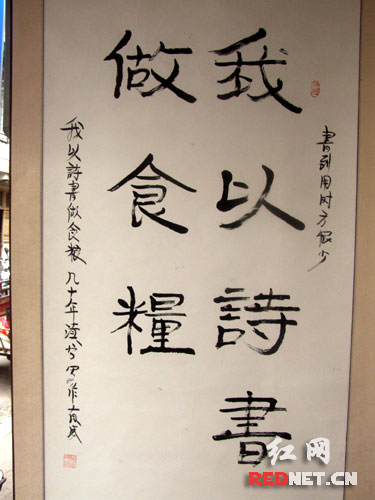 書到用时方恨少
我以詩書
做食糧
我以詩書做食粮 九十年
红网
REDNET.CN